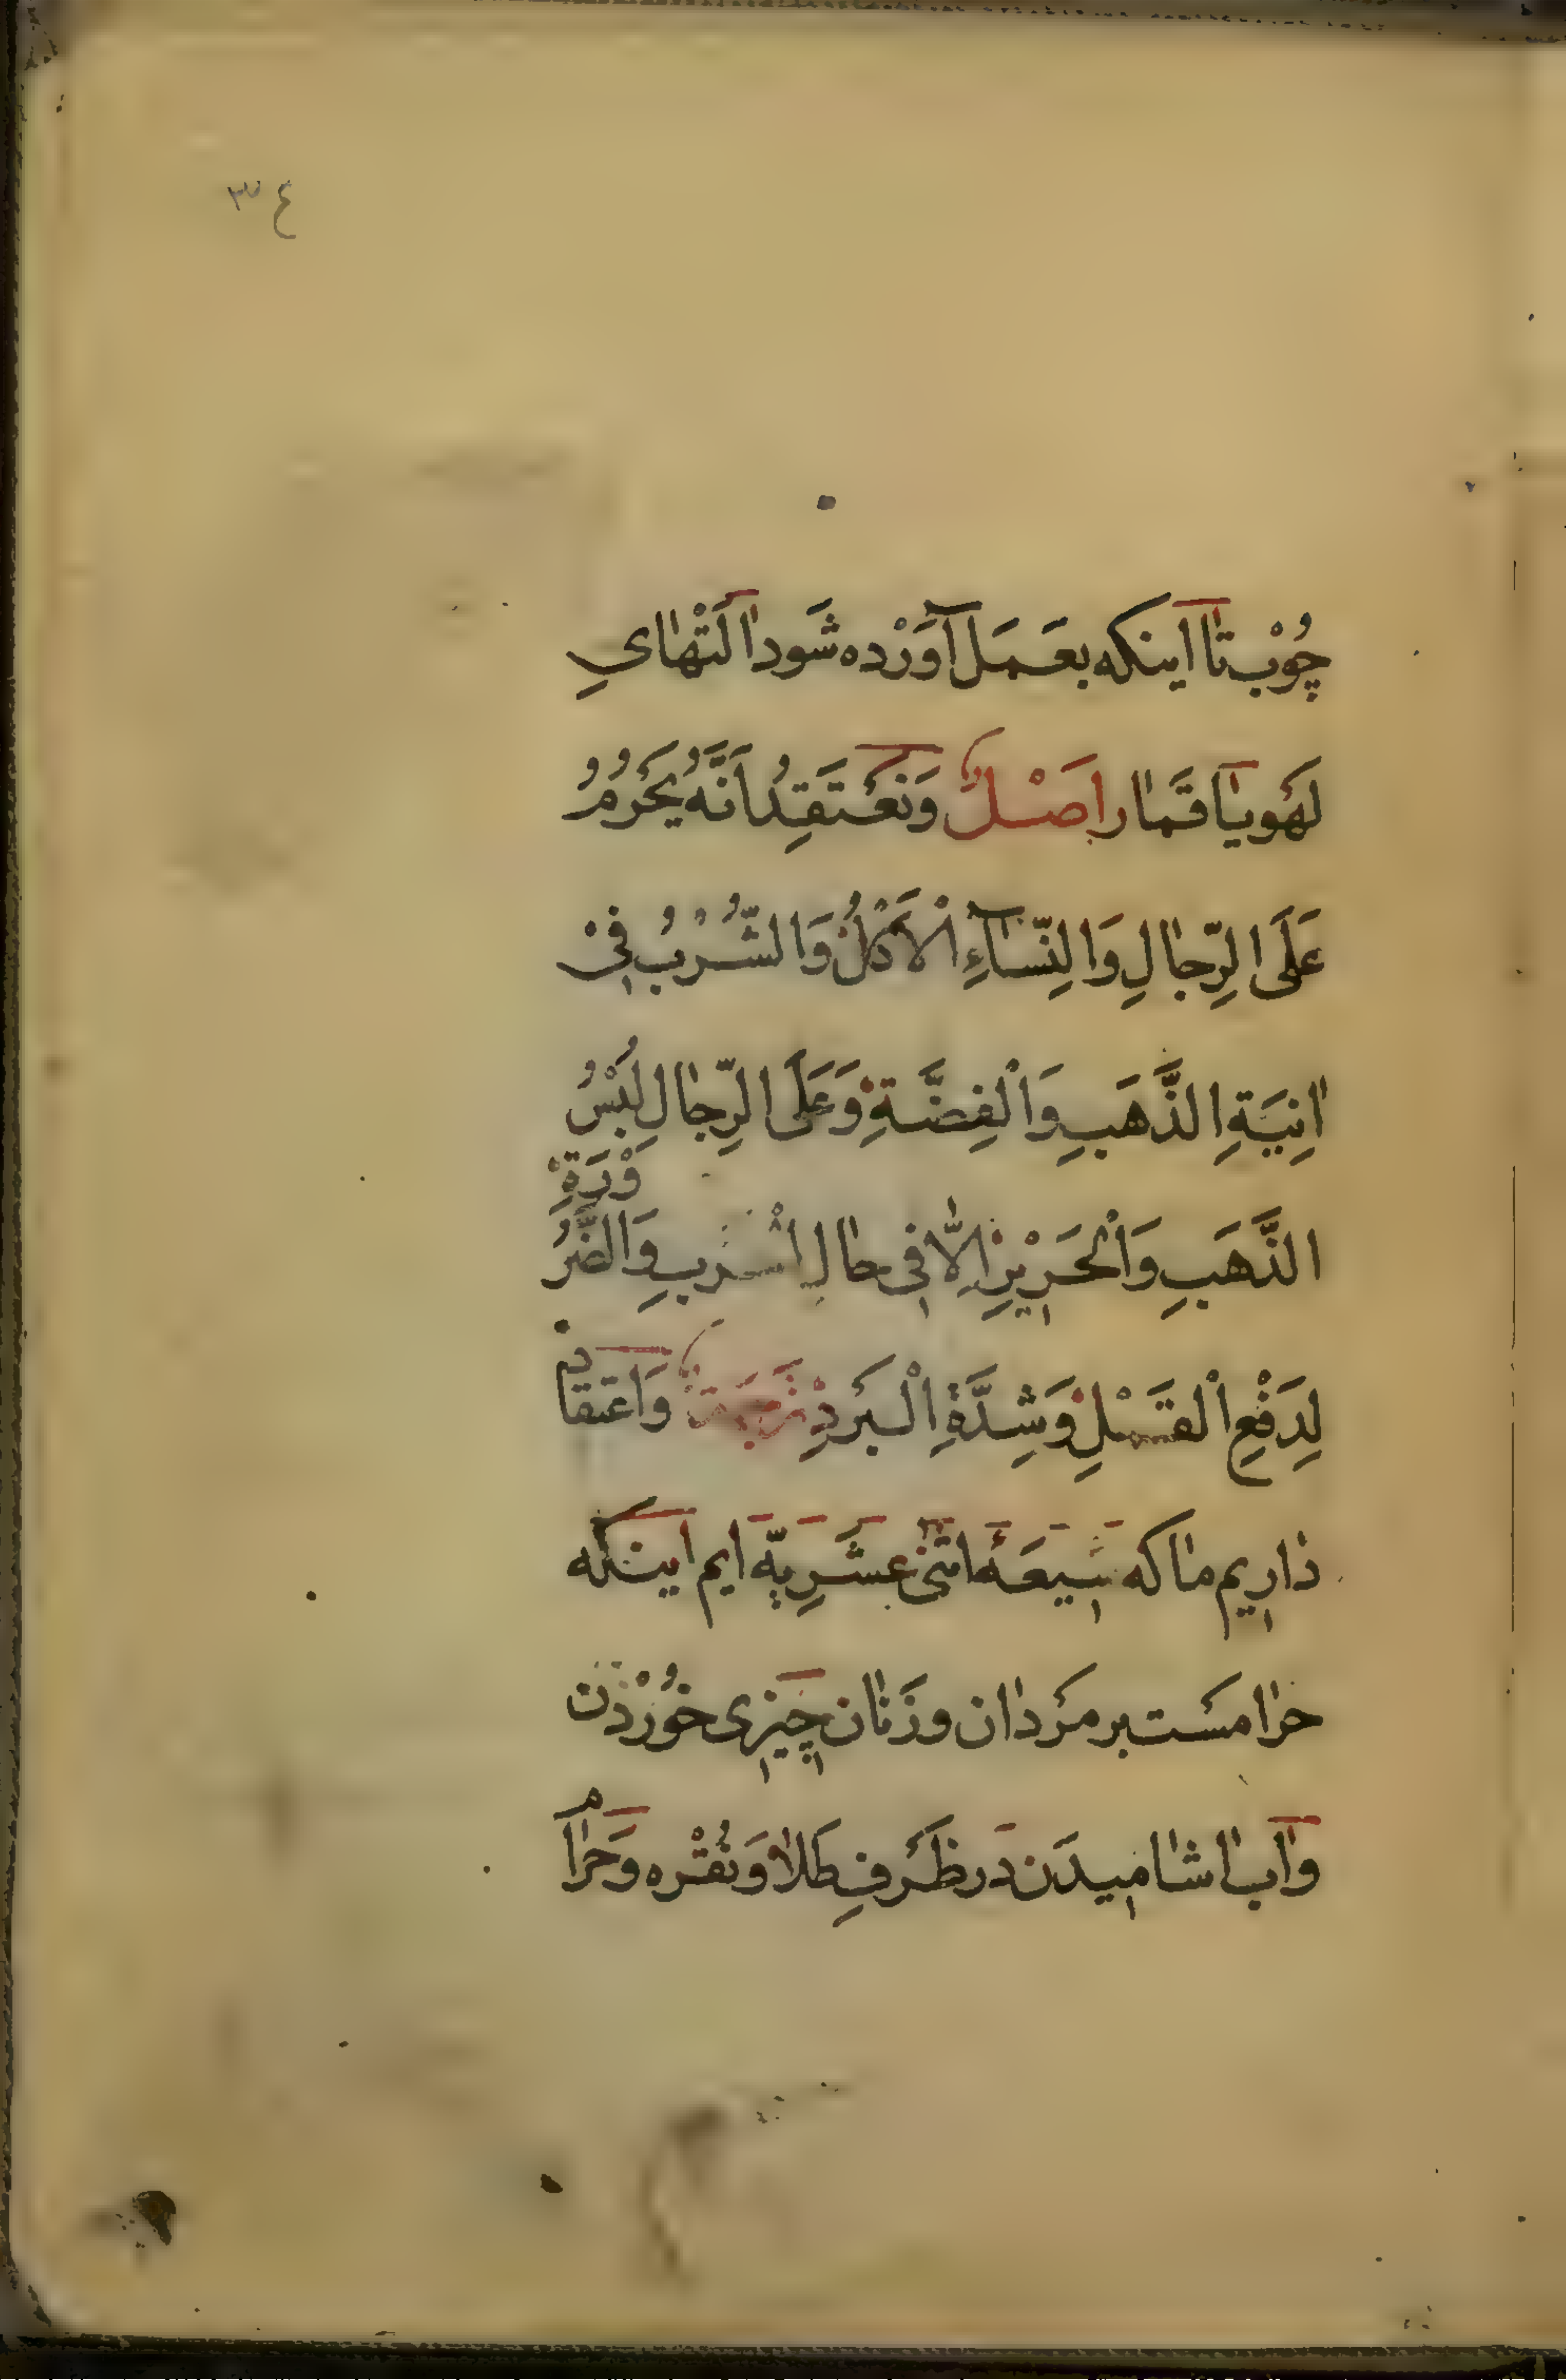 ٣٤
چُوْب تا اینکه بعَمَل آوَرْده شَود اٰلَتْهٰایِ
لَهْو یٰا قَمٰار اَصْلٌ وَنَعْتَقِدُ اَنَّهُ يَحْرُمُ
عَلَى الرِّجٰالِ وَالنِّسٰآءِ الْاَكْلُ وَالشُّرْبُ فِىْ
اٰنِيَةِ الذَّهَبِ وَالْفِضَّةِ وَعَلَى الرِّجٰالِ لُبْسُ
الذَّهَبِ وَالْحَرِيْرِ اِلّٰا فِى حٰالِ وَالضَّرُوْرَةِ
لِدَفْعِ الْقَمْلِ وَشِدَّةِ الْبَرْدِ تَرْجَمَة وَاعتقاد
دٰارِیم مٰا که شیعَهٔ اثنیٰ عشَرِیّه ایم اینکه
حرٰامسَت بر مَرْدٰان و زَنٰان چیزی خُوْرْدَن
وآب اٰشٰامیدَن دَر ظَرْفِ طَلٰا وَنُقْرِه وَحَرٰام